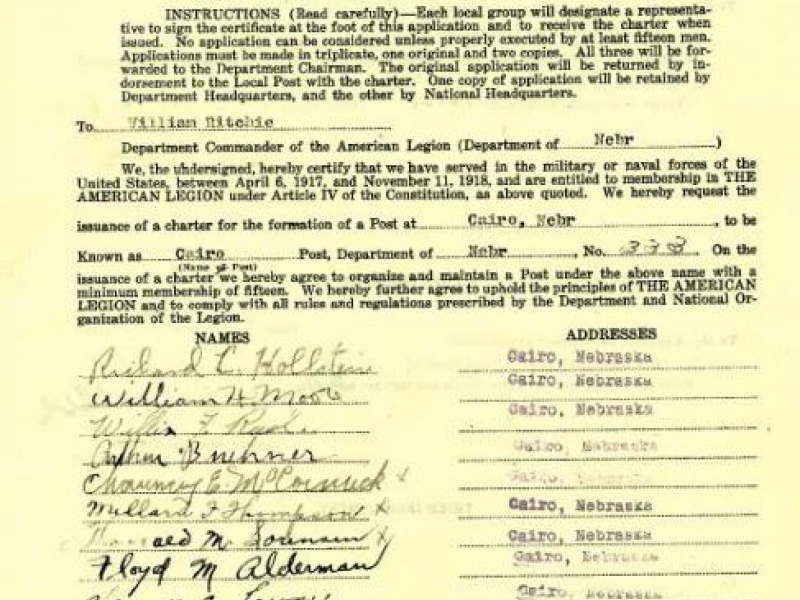 INSTRUCTIONS (Read carefully)—Each local group will designate a representa-
tive to sign the certificate at the foot of this application and to receive the charter when
issued. No application can be considered unless properly executed by at least fifteen men.
Applications must be made in triplicate, one original and two copies. All three will be for-
warded to the Department Chairman. The original application will be returned by in-
dorsement to the Local Post with the charter. One copy of application will be retained by
Department Headquarters, and the other by National Headquarters.
To William Ritchie
Department Commander of the American Legion (Department of Nebr )
We, the undersigned, hereby certify that we have served in the military or naval forces of the
United States, between April 6, 1917, and November 11, 1918, and are entitled to membership in THE
AMERICAN LEGION under Article IV of the Constitution, as above quoted. We hereby request the
issuance of a charter for the formation of a Post at Cairo, Nebr , to be
Known as Cairo Post, Department of Nebr , No. 338 On the
(Name of Post)
issuance of a charter we hereby agree to organize and maintain a Post under the above name with a
minimum membership of fifteen. We hereby further agree to uphold the principles of THE AMERICAN
LEGION and to comply with all rules and regulations prescribed by the Department and National Or-
ganization of the Legion.
NAMES ADDRESSES
Richard C. Hollstein Cairo, Nebraska
William H. Moore Cairo, Nebraska
Willis F. Cairo, Nebraska
Arthur Buehner Cairo, Nebraska
Chauncy E. McCormick x Cairo, Nebraska
Millard F Thompson x Cairo, Nebraska
M. Sorensen x Cairo, Nebraska
Floyd M Alderman Cairo, Nebraska
Cairo, Nebraska